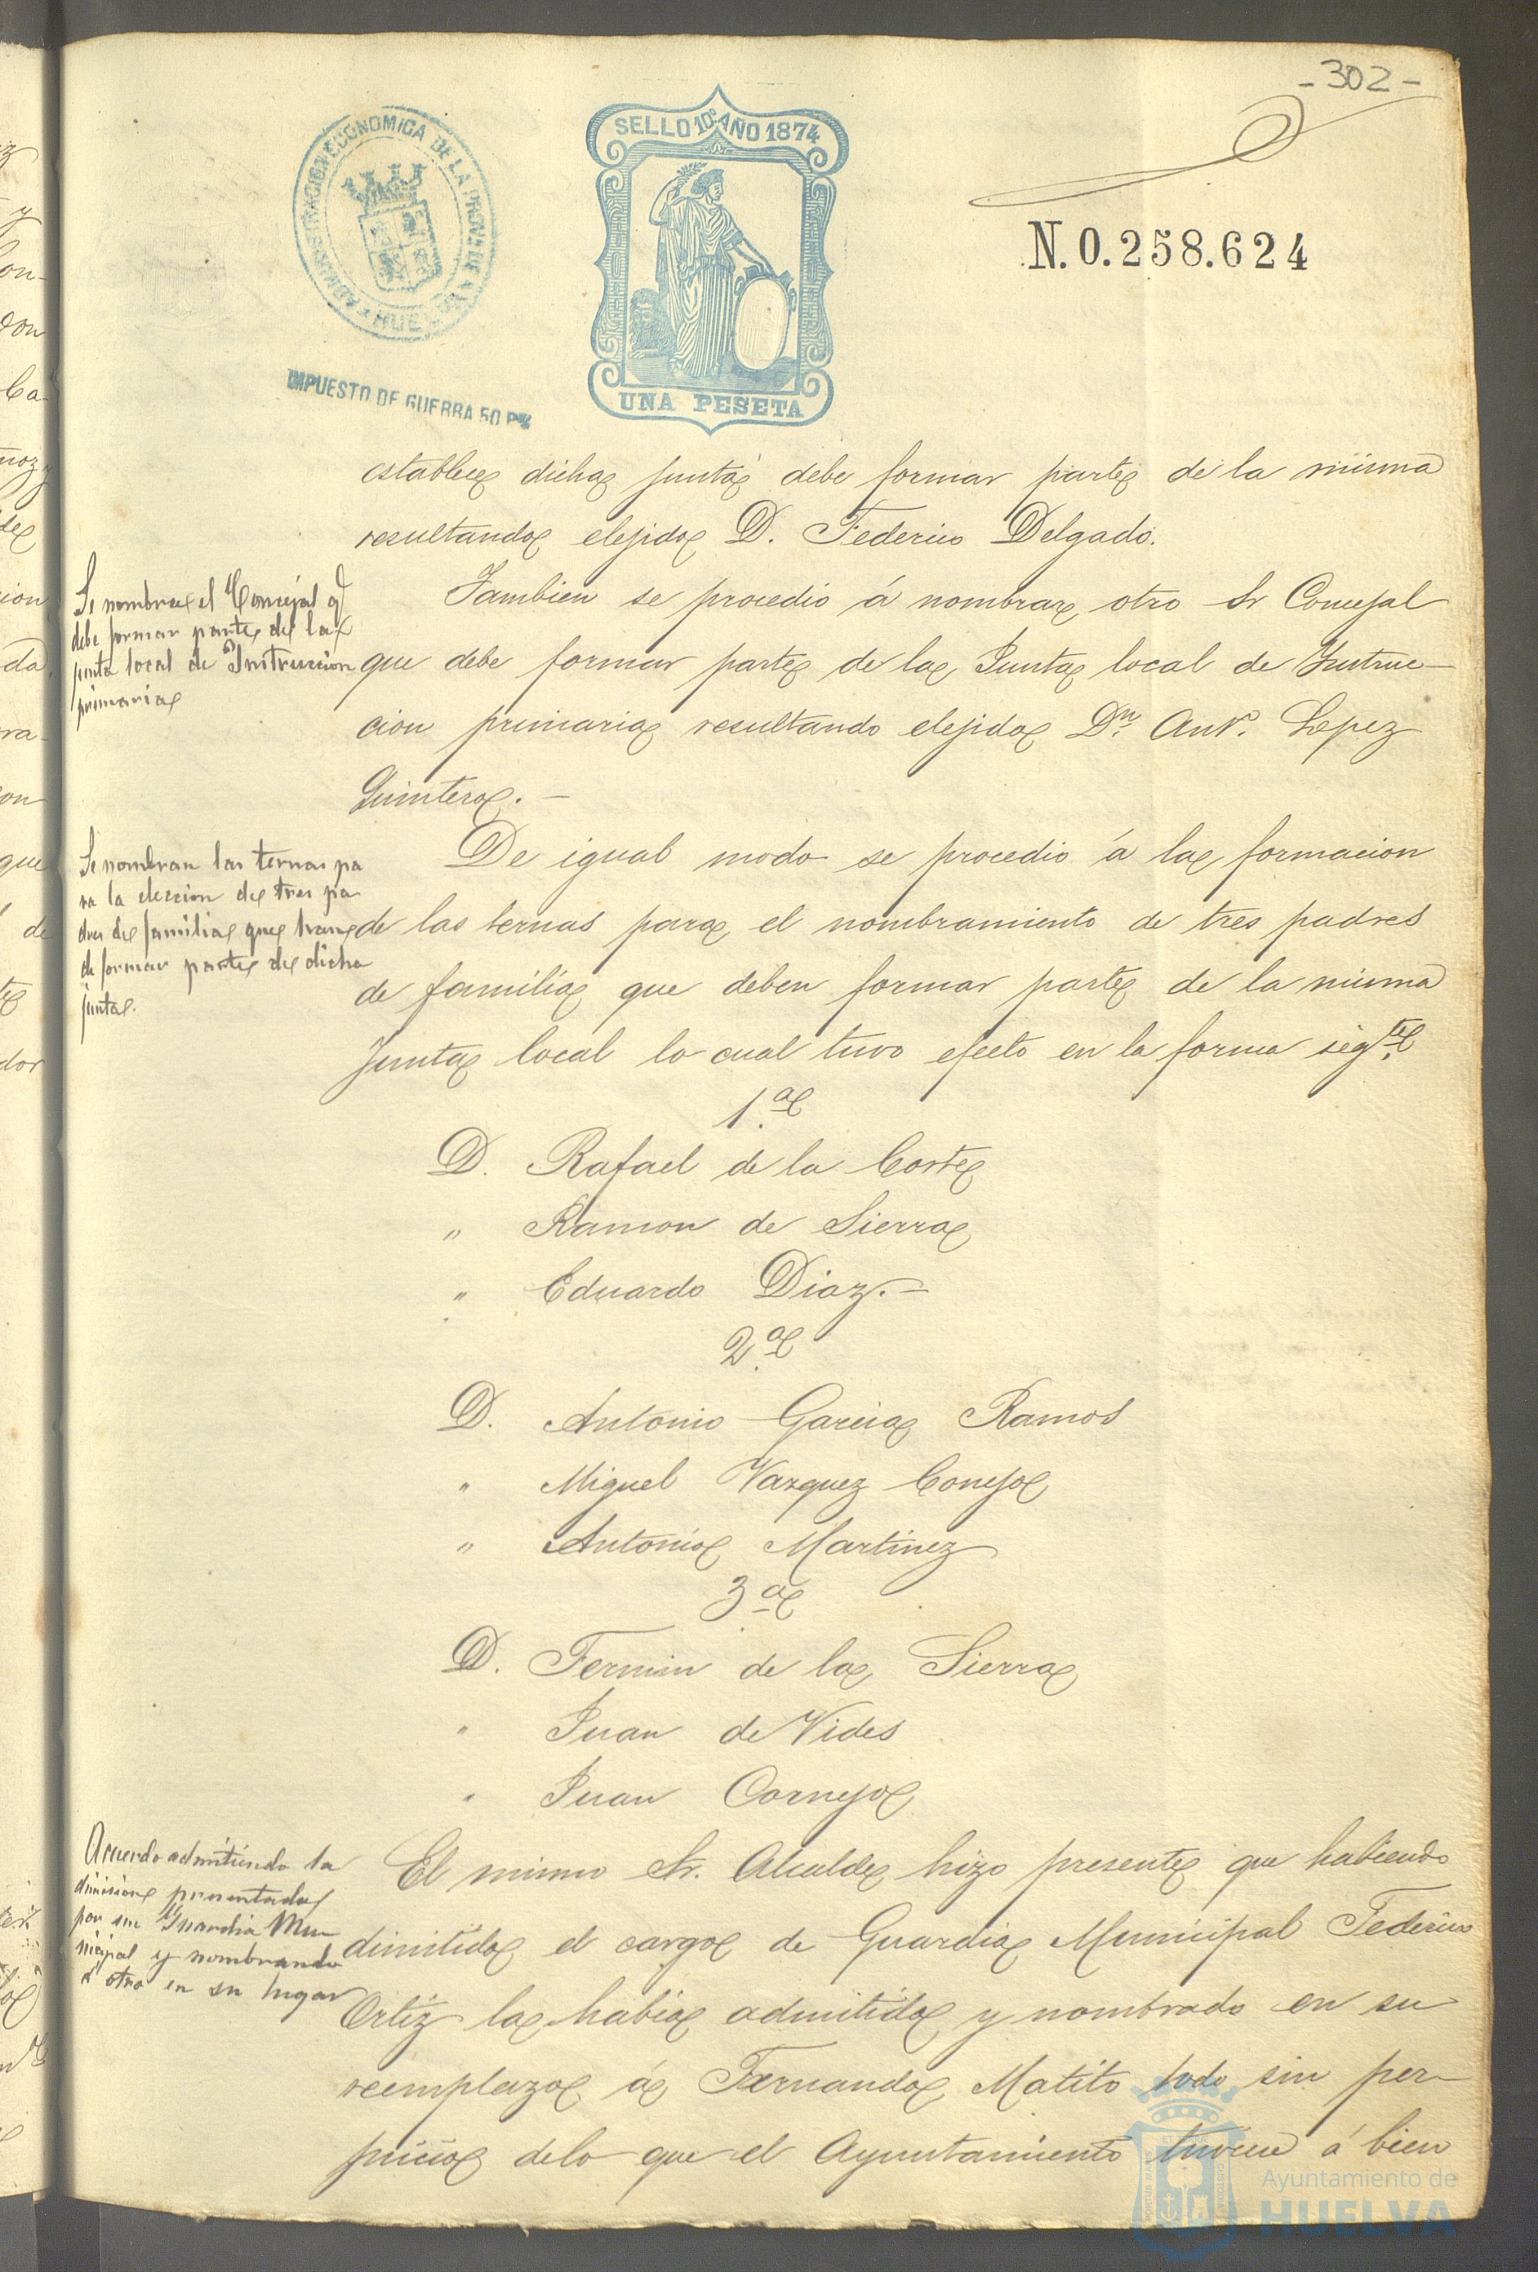 -302-
ADMINISTRACION ECONOMICA DE LA PROVINCIA DE HUELVA
SELLO 10º AÑO 1874
UNA PESETA
N.0.258.624
IMPUESTO DE GUERRA 50
establece dicha junta debe formar parte de la misma
resultando elejido D. Federico Delgado.
Se nombra el Concejal q.
debe formar parte de la
junta local de Instruccion
primaria
Tambien se procedio á nombrar otro Sr Concejal
que debe formar parte de la Junta local de Instruc-
cion primaria resultando elejido Dn. Anto. Lopez
Quintero. -
Se nombran las ternas pa
ra la eleccion de tres pa
dres de familia que han
de formar parte de dicha
junta.
De igual modo se procedio á la formacion
de las ternas para el nombramiento de tres padres
de familia que deben formar parte de la misma
Junta local lo cual tuvo efecto en la forma sigte.
1.a
D. Rafael de la Corte
" Ramon de Sierra
" Eduardo Diaz. -
2.a
D. Antonio Garcia Ramos
" Miguel Vazquez Conejo
" Antonio Martinez
3a
D. Fermin de la Sierra
" Juan de Vides
" Juan Cornejo
Acuerdo admitiendo la
dimision presentada
por un Guardia Mu-
nicipal y nombrando
á otro en su lugar
El mismo Sr. Alcalde hizo presente que habiendo
dimitido el cargo de Guardia Municipal Federico
Ortiz la habia admitido y nombrado en su
reemplazo á Fernando Matito todo sin per-
juicio delo que el Ayuntamiento tuviese á bien
Ayuntamiento de
HUELVA